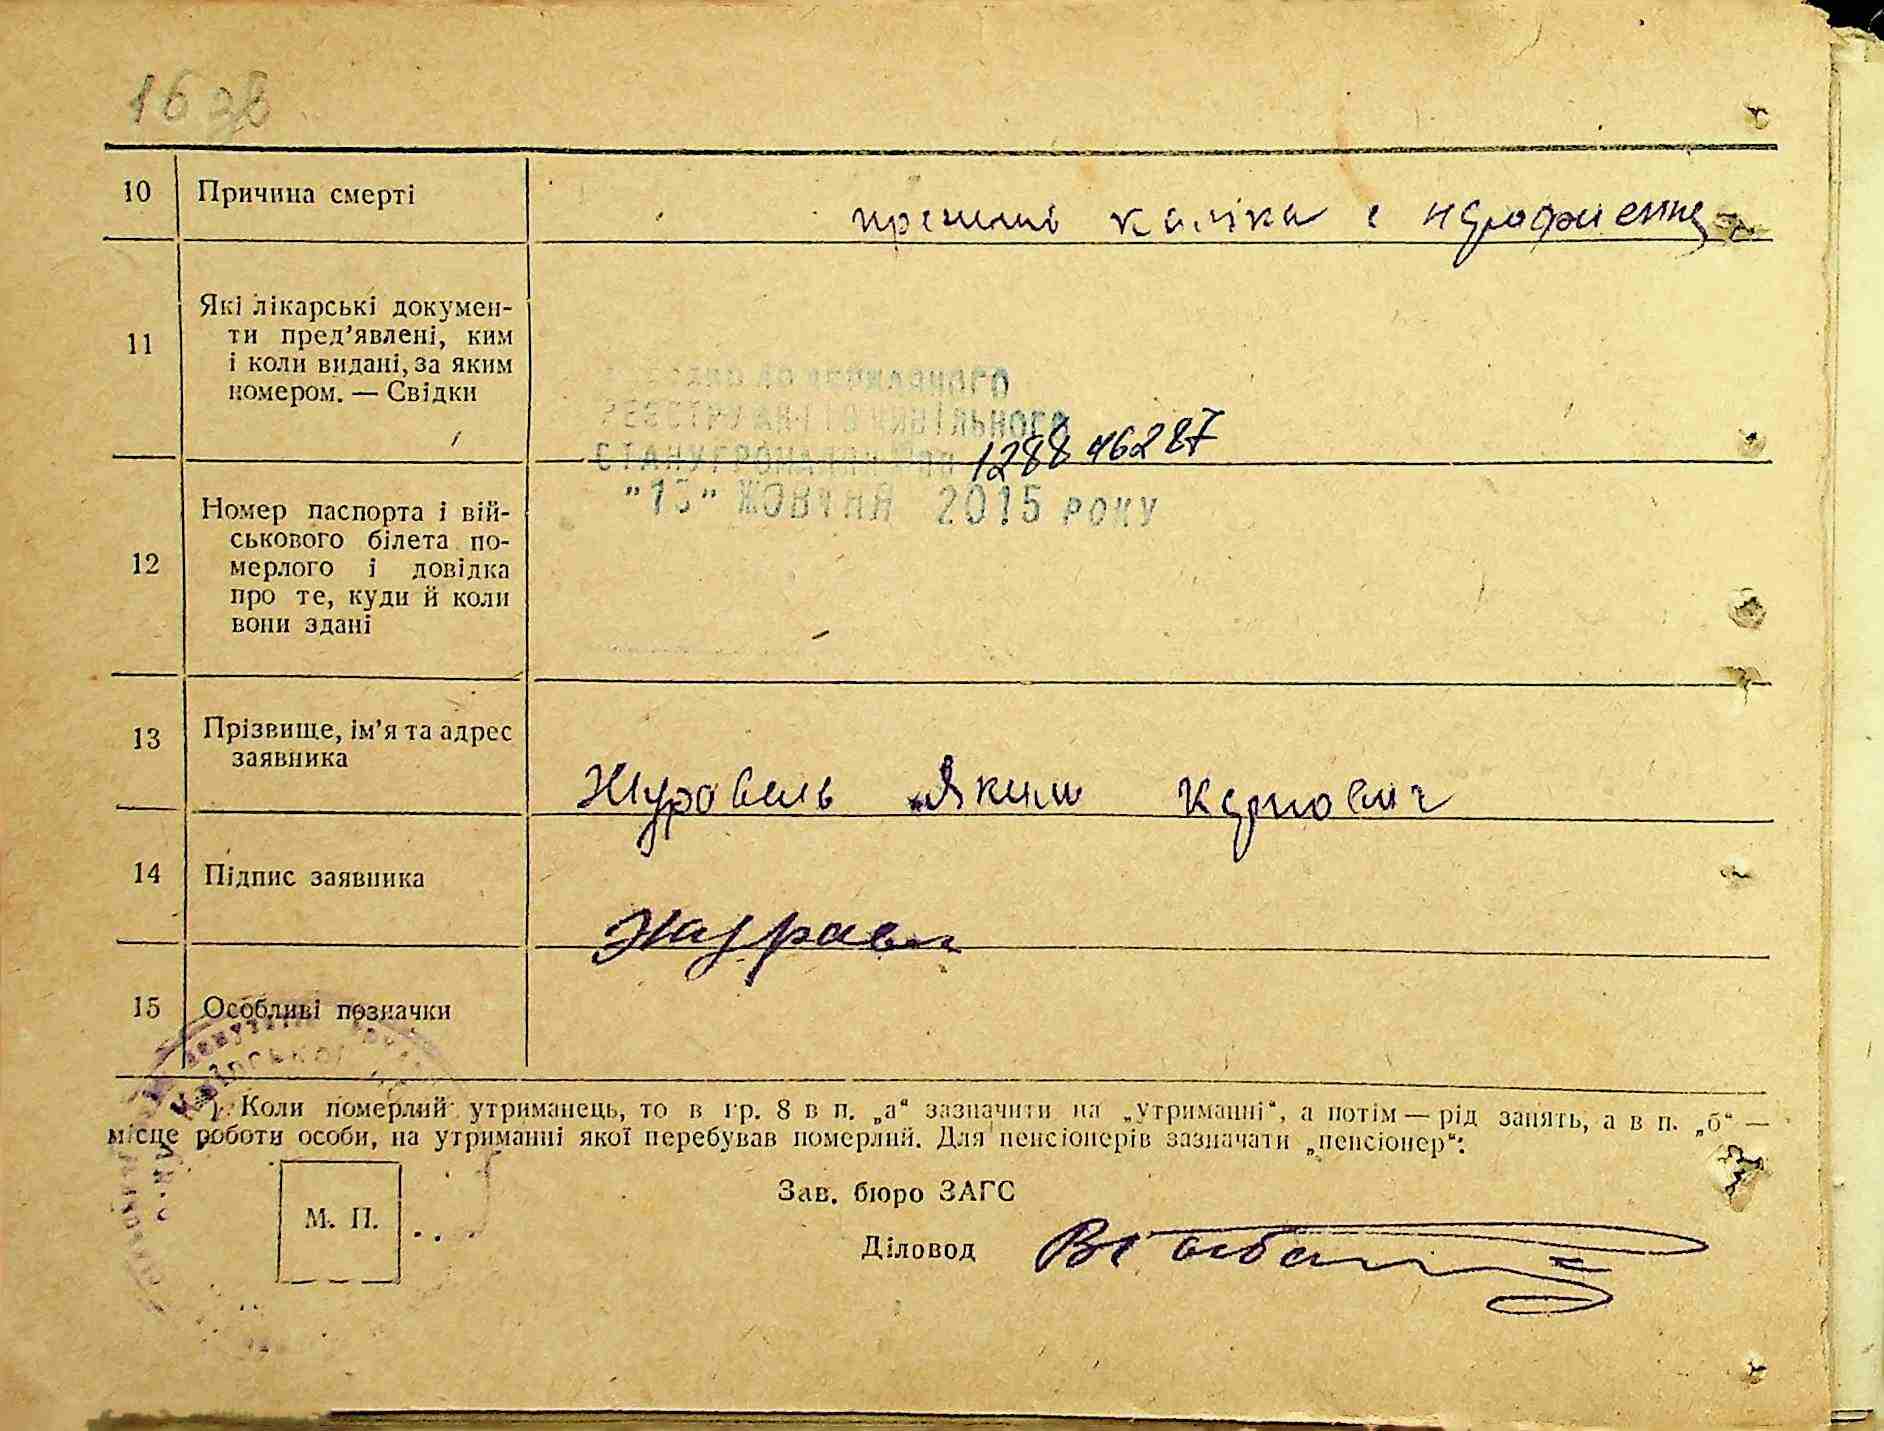 16 зв
10 Причина смерті
каліка з народження
11 Які лікарські докумен-
ти пред’явлені, ким
і коли видані, за яким
номером. — Свідки
ДО ДЕРЖАВНОГО
РЕЄСТРУ АКТІВ ЦИВІЛЬНОГО
СТАНУ ГРОМАДЯН
"15" ЖОВТНЯ 2015 РОКУ
12 Номер паспорта і вій-
ськового білета по-
мерлого і довідка
про те, куди й коли
вони здані
13 Прізвище, ім’я та адрес
заявника
Журовель Яким
14 Підпис заявника
Журавл
15 Особливі позначки
*) Коли померлий утриманець, то в гр. 8 в п. „а“ зазначити на „утриманні“, а потім — рід занять, а в п. „б“ —
місце роботи особи, на утриманні якої перебував померлий. Для пенсіонерів зазначати „пенсіонер“.
Зав. бюро ЗАГС
М. П.
Діловод